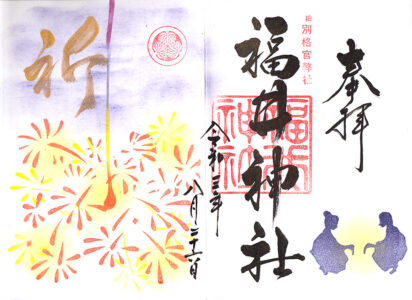 奉拝
旧別格官幣社
福井神社
福井
神社
令和三年
八月二十一日
祈